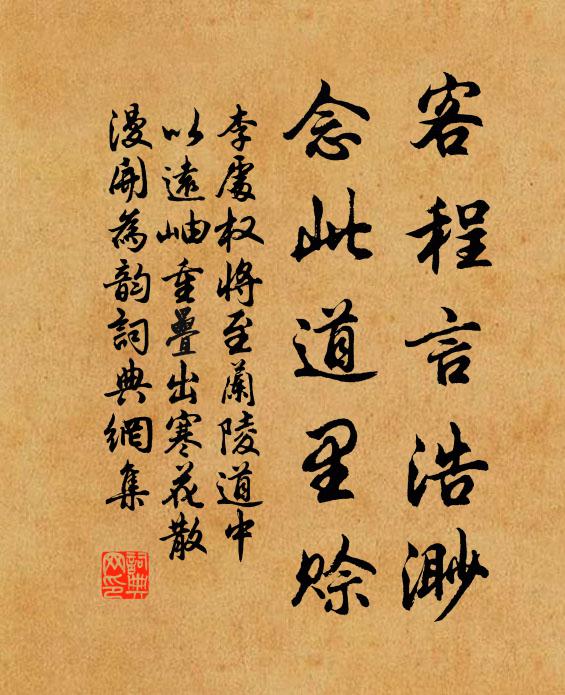 客程言浩渺
念此道里赊
李處权将至蘭陵道中
以遠岫重疊出寒花散
漫開為韵詞典網集
詞典
网印